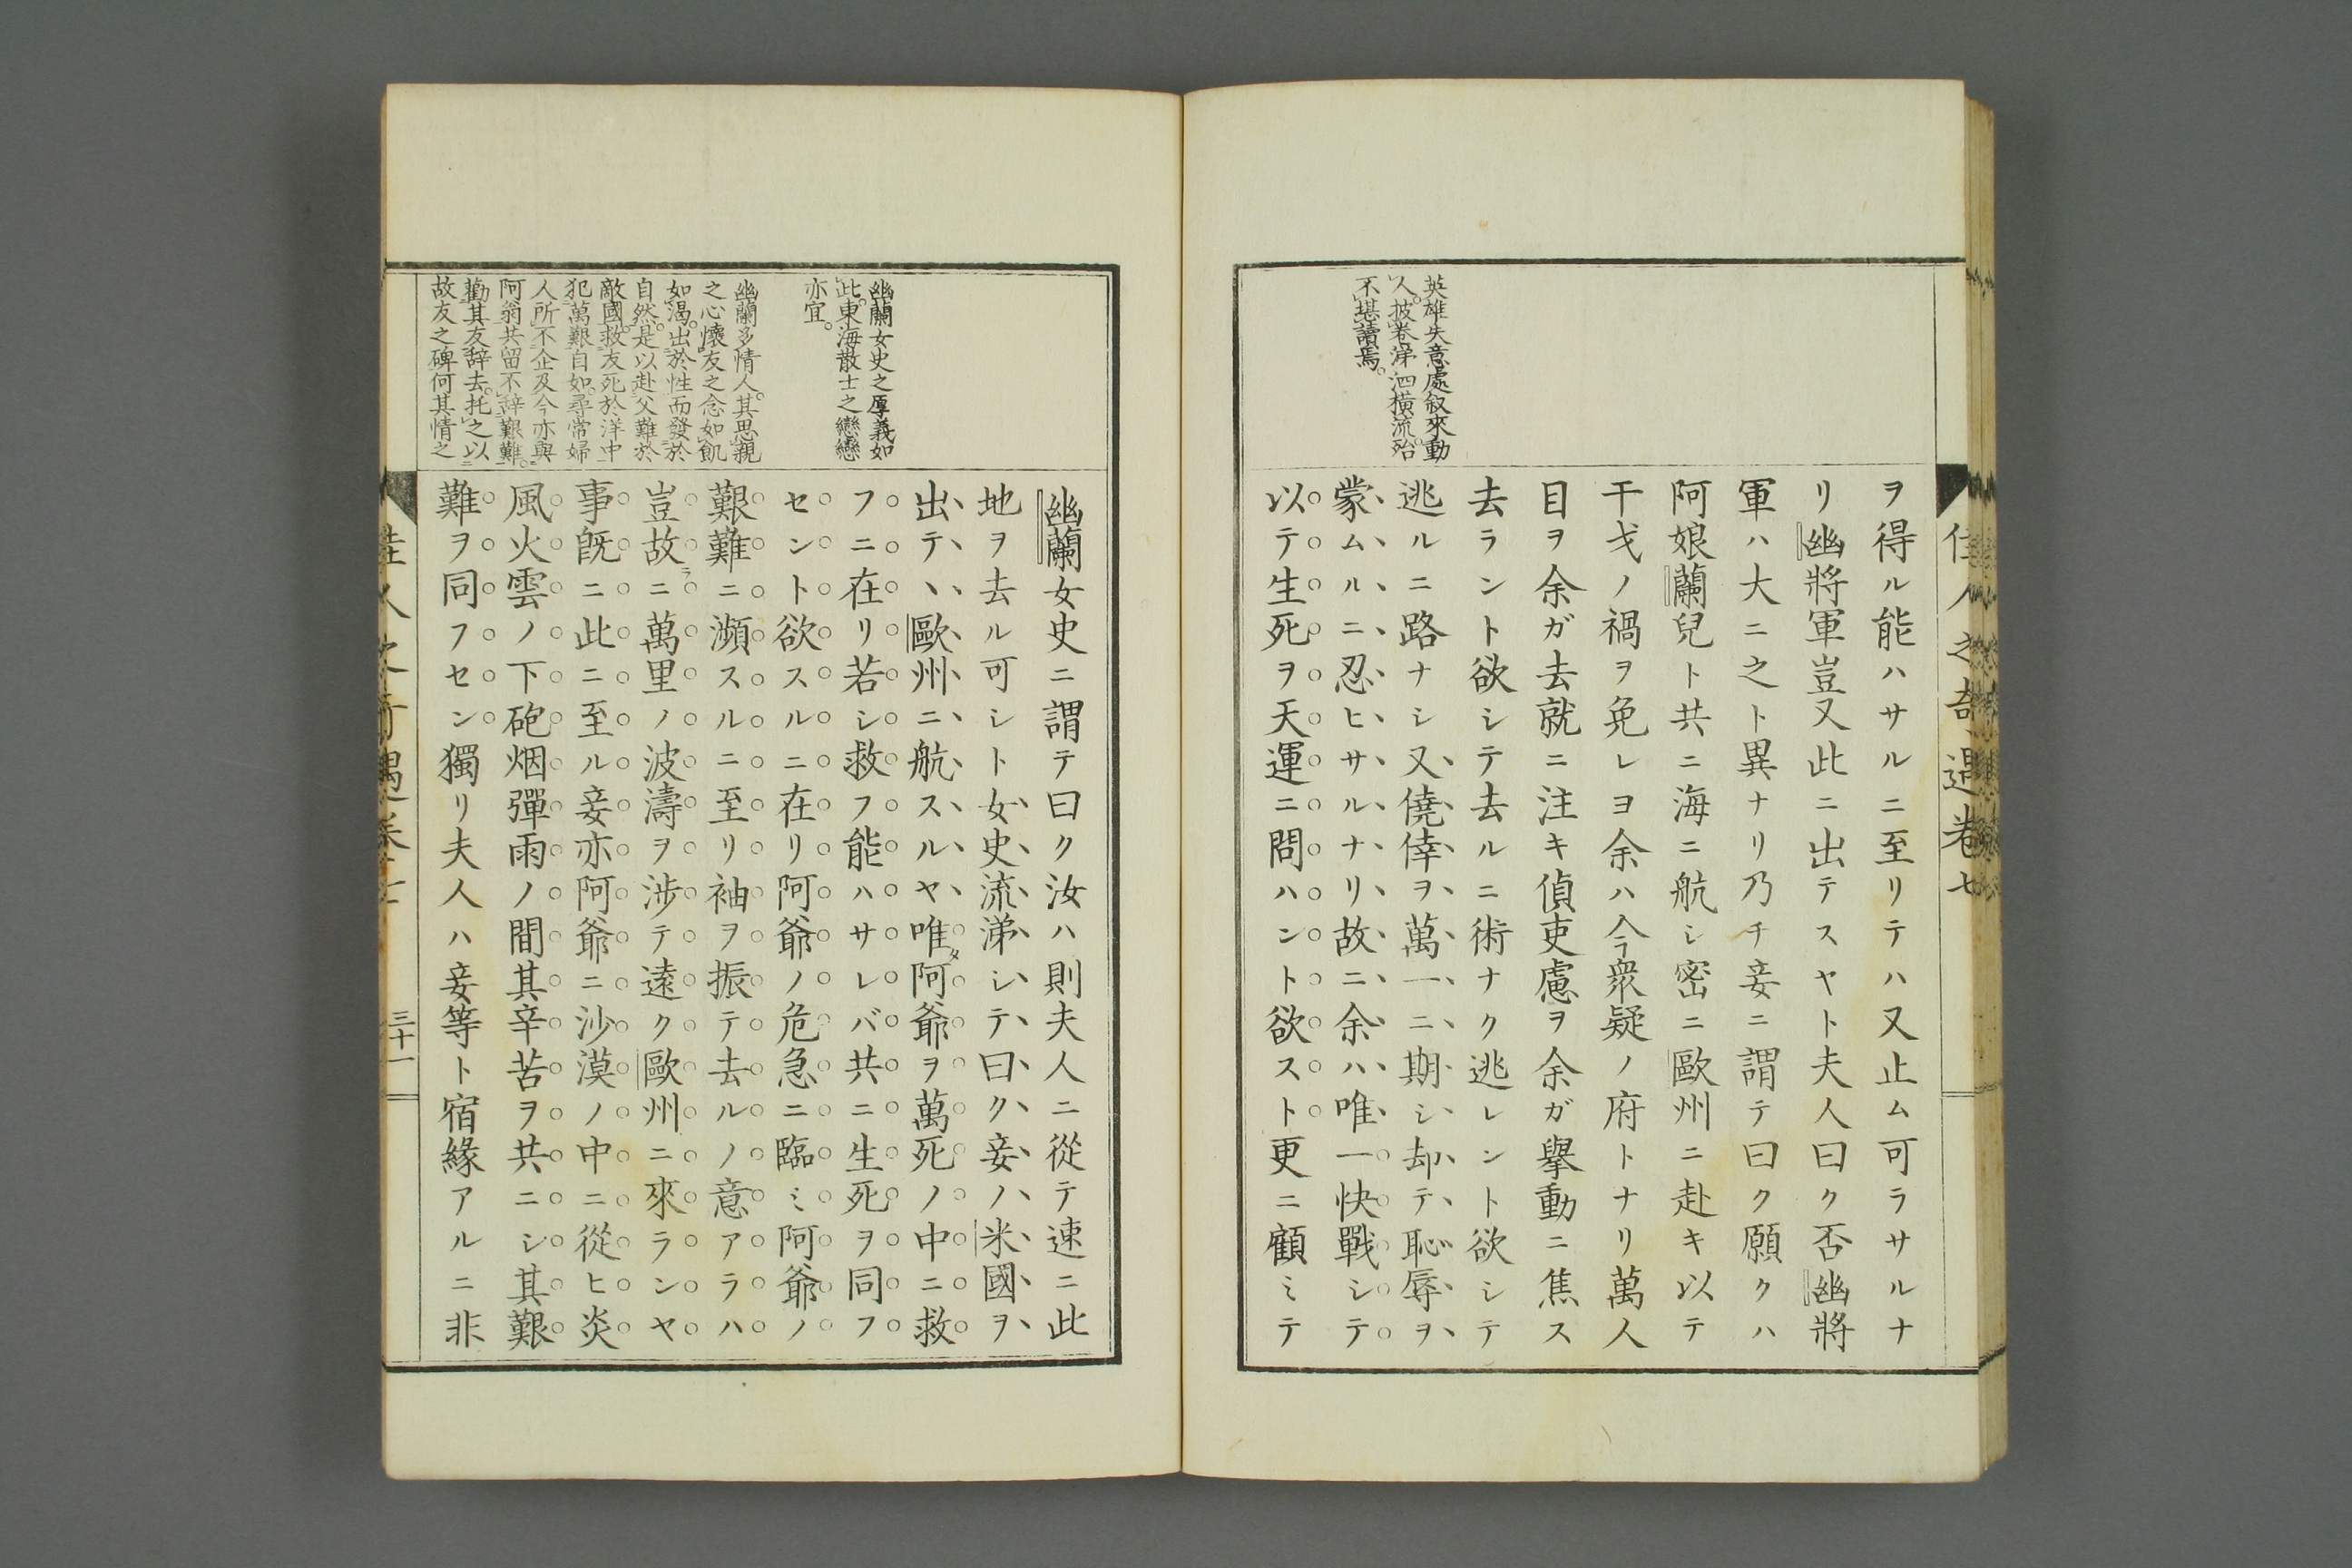 佳人之奇遇卷七
英雄失意處叙來動
人披卷涕泗橫流殆
不堪讀焉。
ヲ得ル能ハサルニ至リテハ又止ム可ラサルナ
リ幽將軍豈又此ニ出テスヤト夫人曰ク否幽將
軍ハ大ニ之ト異ナリ乃チ妾ニ謂テ曰ク願クハ
阿娘蘭兒ト共ニ海ニ航シ密ニ歐州ニ赴キ以テ
干戈ノ禍ヲ免レヨ余ハ今衆疑ノ府トナリ萬人
目ヲ余ガ去就ニ注キ偵吏慮ヲ余ガ擧動ニ焦ス
去ラント欲シテ去ルニ術ナク逃レント欲シテ
逃ルニ路ナシ又僥倖ヲ萬一ニ期シ却テ恥辱ヲ
蒙ムルニ忍ヒサルナリ故ニ余ハ唯一快戰シテ
以テ生死ヲ天運ニ問ハント欲スト更ニ顧ミテ
幽蘭女史之厚義如
此。東海散士之戀戀
亦宜。
幽蘭多情人。其思親
之心懷友之念如飢
如渴。出於性而發於
自然。是以赴父難於
敵國。救友死於洋中
犯萬艱自如。尋常婦
人所不企及今亦與
阿翁共留不辞艱難。
勸其友辞去。托之以
故友之碑何其情之
幽蘭女史ニ謂テ曰ク汝ハ則夫人ニ從テ速ニ此
地ヲ去ル可シト女史流涕シテ曰ク妾ノ米國ヲ
出テヽ歐州ニ航スルヤ唯タ阿爺ヲ萬死ノ中ニ救
フニ在リ若シ救フ能ハサレバ共ニ生死ヲ同フ
セント欲スルニ在リ阿爺ノ危急ニ臨ミ阿爺ノ
艱難ニ瀕スルニ至リ袖ヲ振テ去ルノ意アラハ
豈故ラニ萬里ノ波濤ヲ涉テ遠ク歐州ニ來ランヤ
事既ニ此ニ至ル妾亦阿爺ニ沙漠ノ中ニ從ヒ炎
風火雲ノ下砲烟彈雨ノ間其辛苦ヲ共ニシ其艱
難ヲ同フセン獨リ夫人ハ妾等ト宿緣アルニ非
佳人之奇遇卷七
三十一